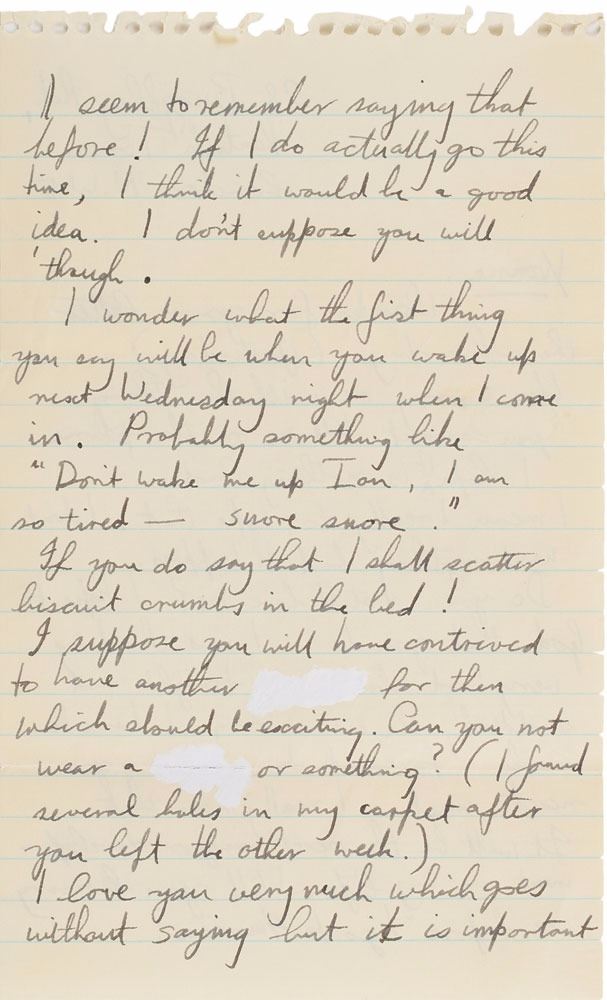 I seem to remember saying that
before! If I do actually go this
time, I think it would be a good
idea. I don't suppose you will
'though.
I wonder what the first thing
you say will be when you wake up
next Wednesday night when I come
in. Probably something like
"Don't wake me up Ian, I am
so tired — snore snore."
If you do say that I shall scatter
biscuit crumbs in the bed!
I suppose you will have contrived
to have another for then
which should be exciting. Can you not
wear a or something? (I found
several holes in my carpet after
you left the other week.)
I love you very much which goes
without saying but it is important